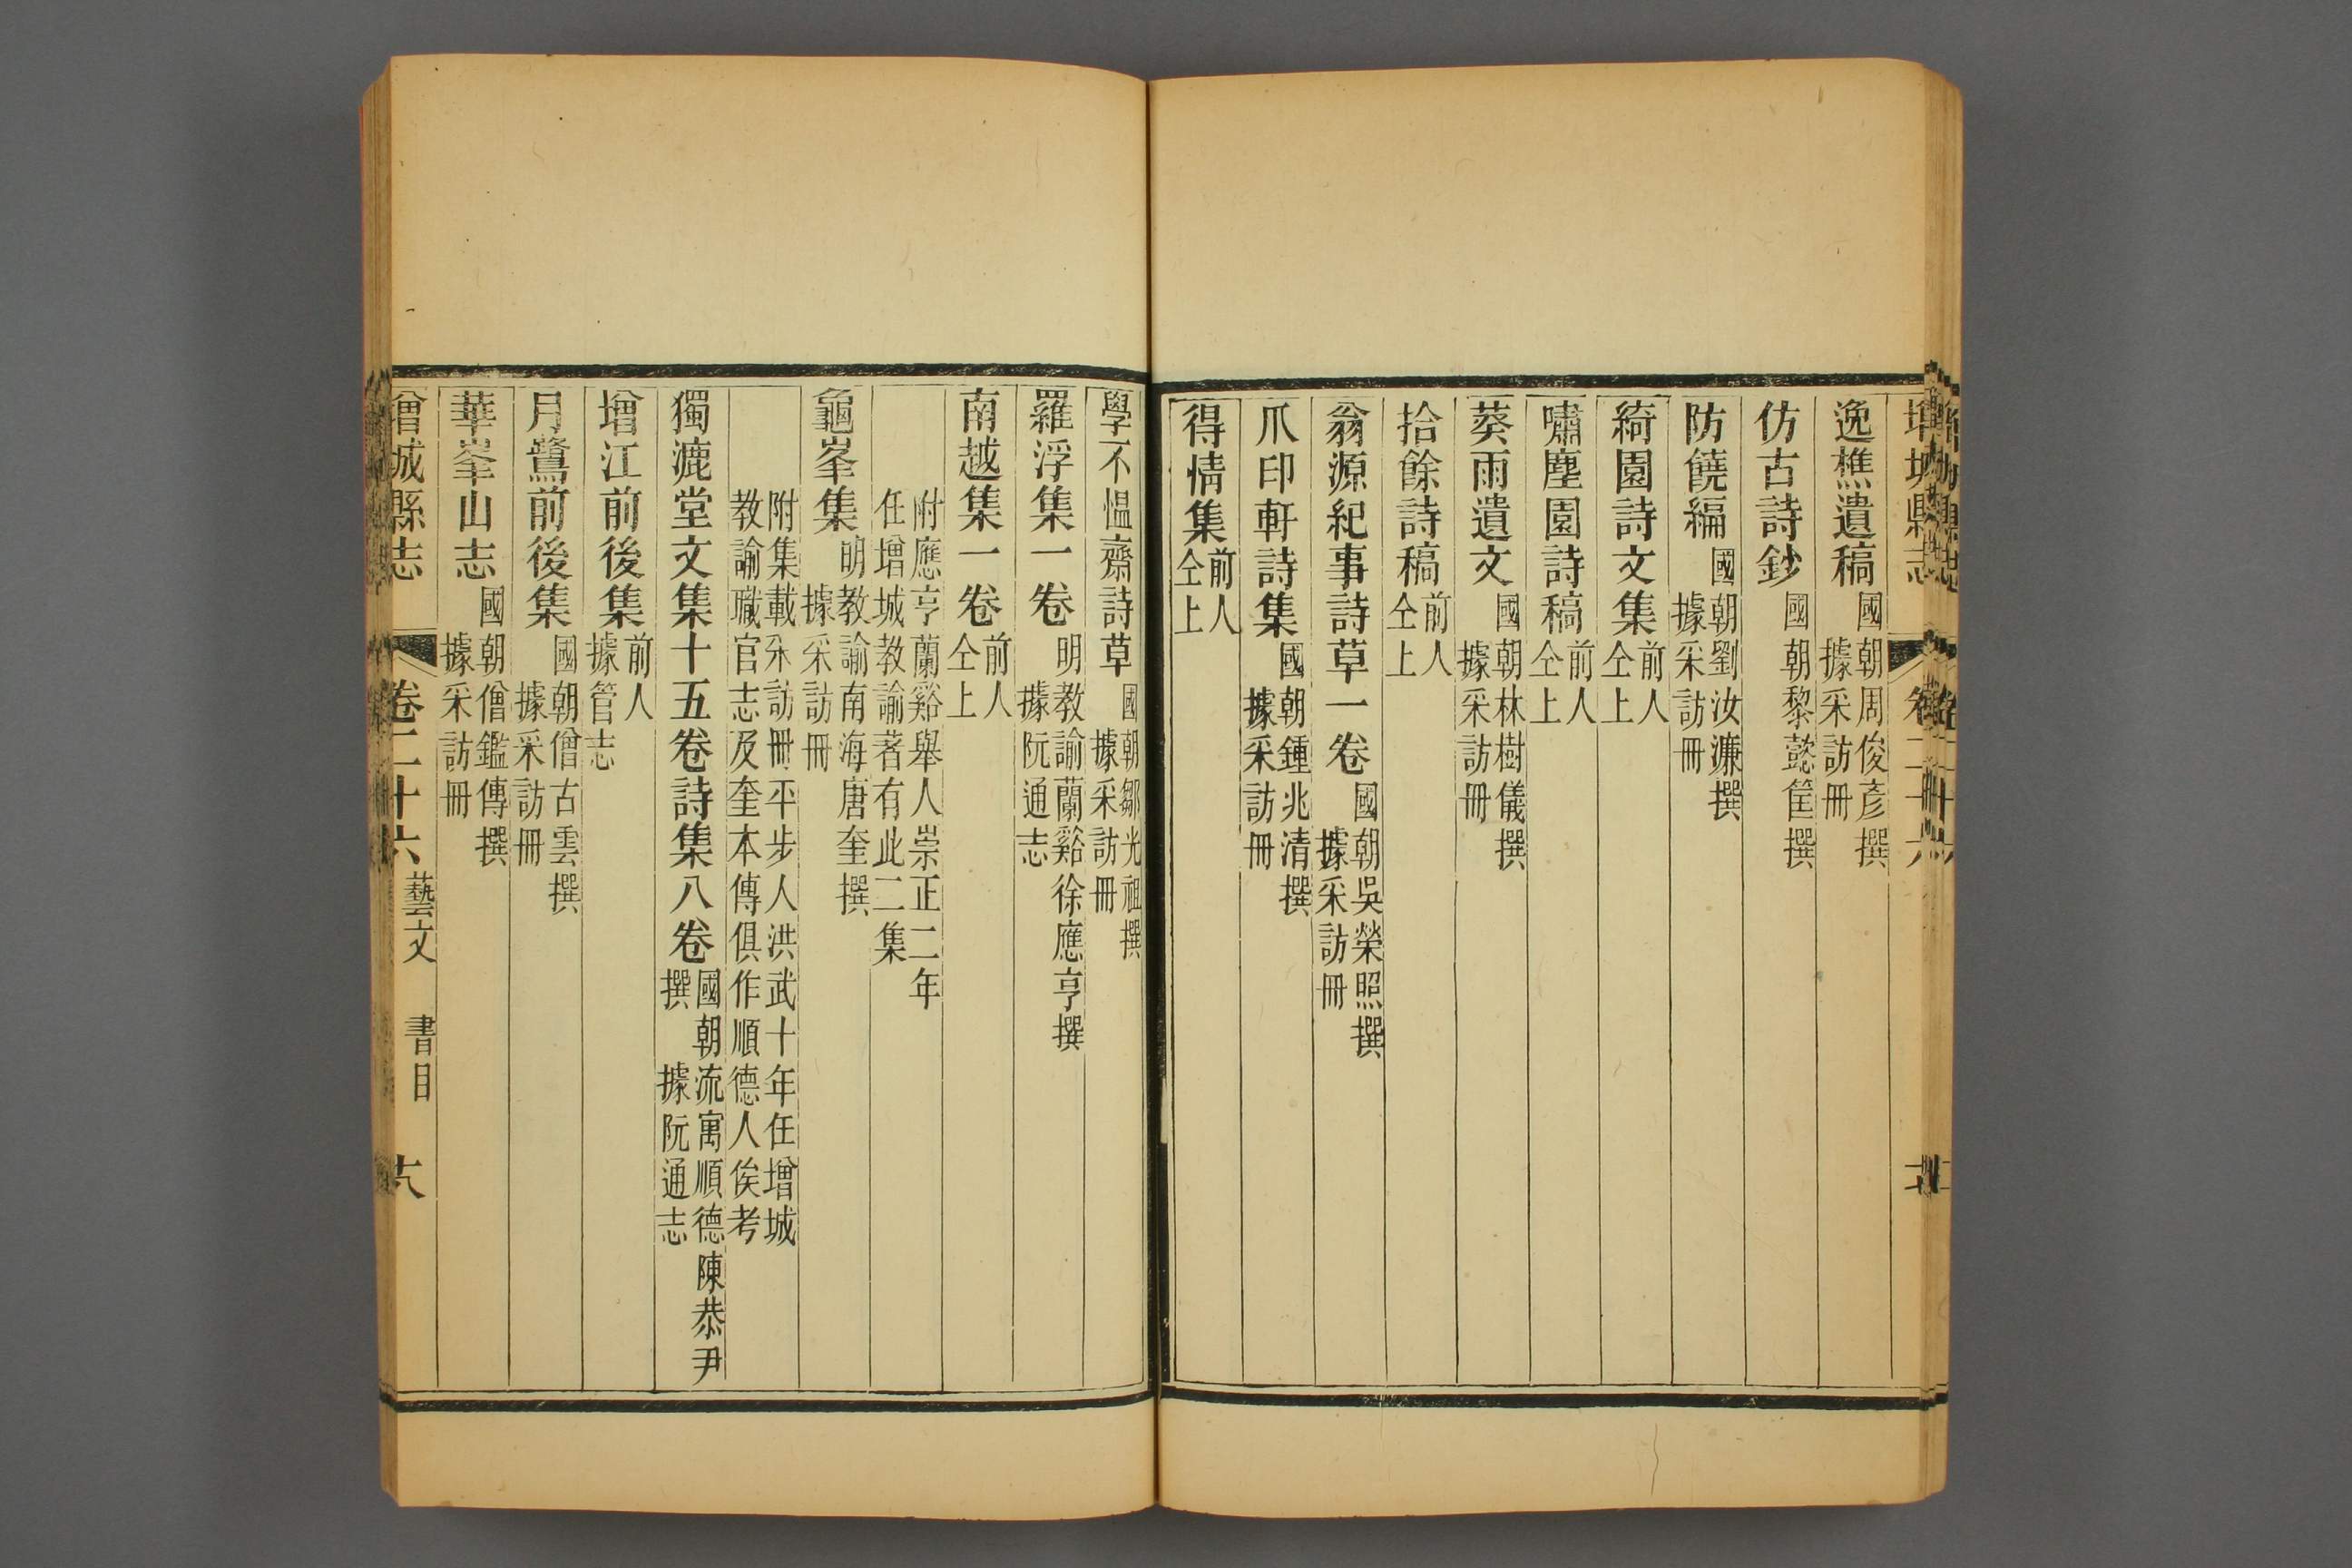 逸樵遺稿 國朝周俊彥撰 據采訪冊
仿古詩鈔 國朝黎懿筐撰
防饒編 國朝劉汝濂撰 據采訪冊
綺園詩文集 前人 仝上
嘯塵園詩稿 前人 仝上
葵雨遺文 國朝林樹儀撰 據采訪冊
拾餘詩稿 前人 仝上
翁源紀事詩草一卷 國朝吳榮照撰 據采訪冊
爪印軒詩集 國朝鍾兆清撰 據采訪冊
得情集 前人 仝上
學不慍齋詩草 國朝鄒光祖撰 據采訪冊
羅浮集一卷 明教諭蘭谿徐應亨撰 據阮通志
南越集一卷 前人 仝上
附應亨蘭谿舉人崇正二年
任增城教諭著有此二集
龜峯集 明教諭南海唐奎撰 據采訪冊
附集載采訪冊平步人洪武十年任增城
教諭職官志及奎本傳俱作順德人俟考
獨漉堂文集十五卷詩集八卷 國朝流寓順德陳恭尹撰 據阮通志
增江前後集 前人 據管志
月鷺前後集 國朝僧古雲撰 據采訪冊
華峯山志 國朝僧鑑傳撰 據采訪冊
增城縣志 卷二十六 藝文 書目 十六